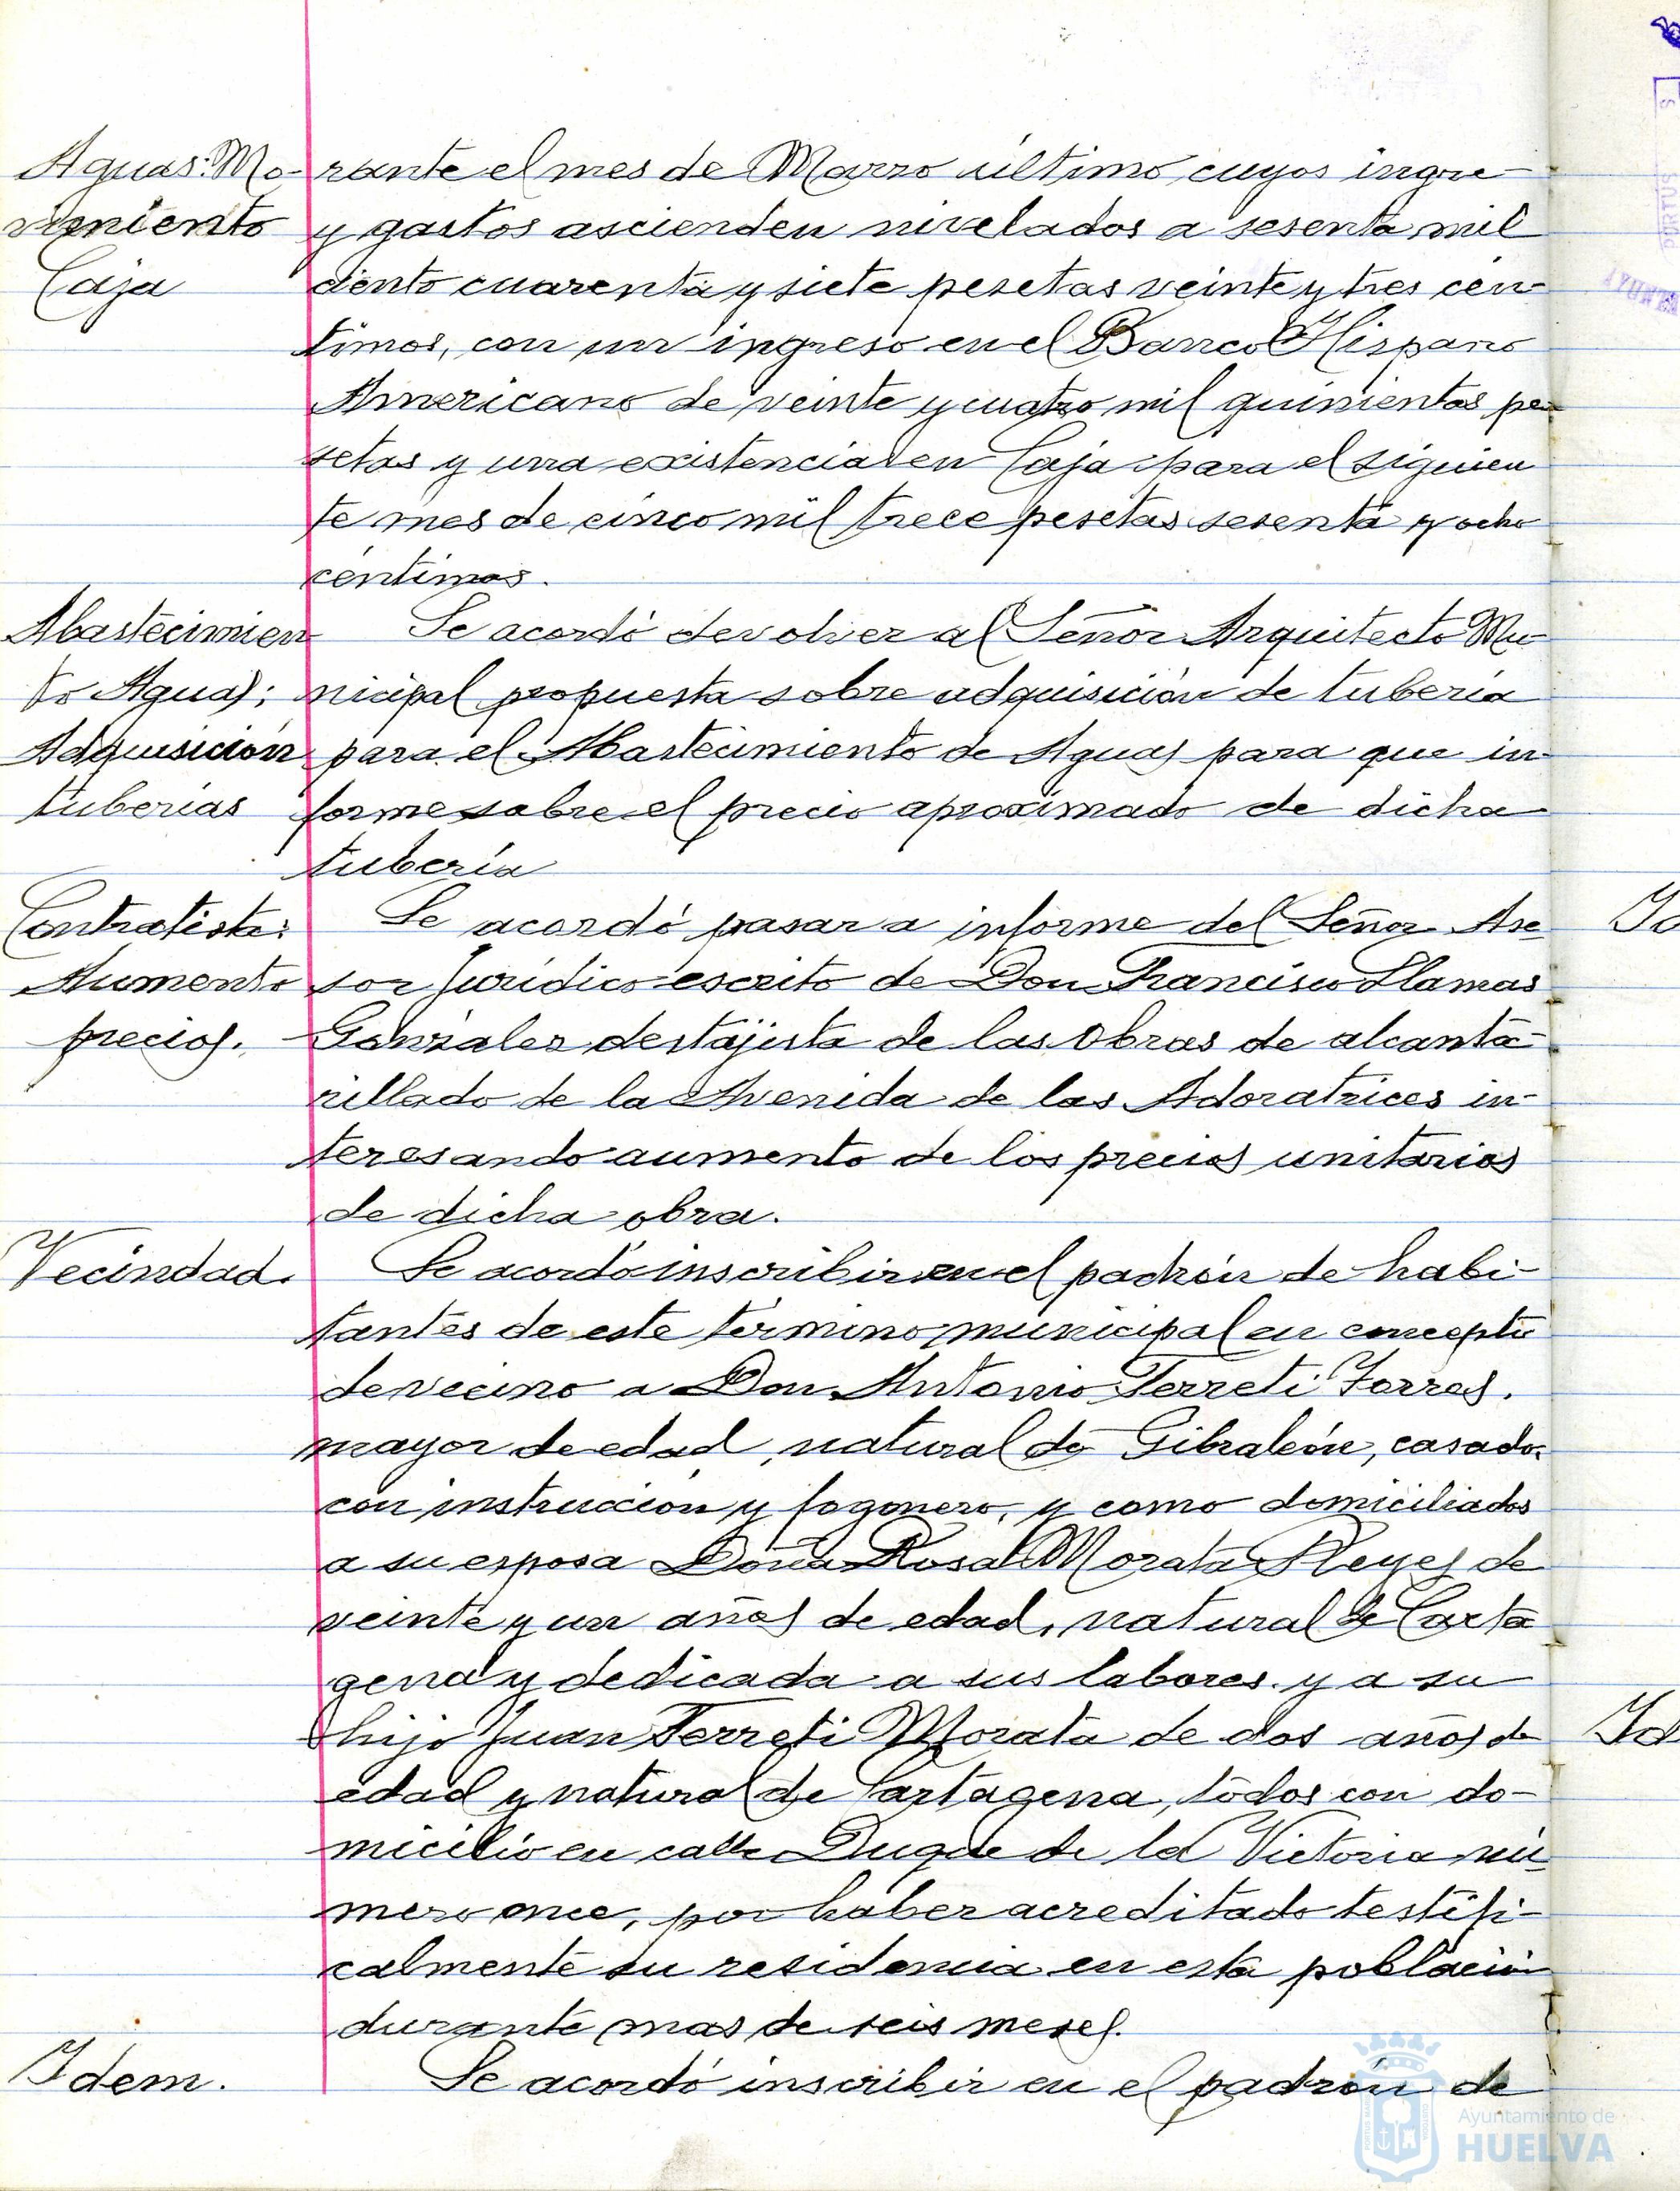 Aguas: Mo-
vimiento
Caja
rante el mes de Marzo último cuyos ingre-
y gastos ascienden nivelados a sesenta mil
ciento cuarenta y siete pesetas veinte y tres cen-
timos, con un ingreso en el Banco Hispano
Americano de veinte y cuatro mil quinientas pe-
setas y una existencia en Caja para el siguien
te mes de cinco mil trece pesetas sesenta y ocho
centimos.
Abastecimien
to Aguas;
Adquisición
tuberias
Se acordó devolver al Señor Arquitecto Mu-
nicipal propuesta sobre adquisición de tubería
para el Abastecimiento de Aguas para que in-
forme sobre el precio aproximado de dicha
tubería
Contratista:
Aumento
precios.
Se acordó pasar a informe del Señor Ase-
sor Jurídico escrito de Don Francisco Llamas
Gonzalez destajista de las Obras de alcanta-
rillado de la Avenida de las Adoratrices in-
teresando aumento de los precios unitarios
de dicha obra.
Vecindad.
Se acordó inscribir en el padrón de habi-
tantes de este término municipal en concepto
de vecino a Don Antonio Ferreti Torres,
mayor de edad, natural de Gibraleón, casado,
con instruccion y fogonero, y como domiciliados
a su esposa Doña Rosa Morata Reyes de
veinte y un años de edad, natural de Carta
gena y dedicada a sus labores y a su
hijo Juan Ferreti Morata de dos años de
edad y natural de Cartagena, todos con do-
micilio en calle Duque de la Victoria nú-
mero once, por haber acreditado testifi-
calmente su residencia en esta población
durante mas de seis meses.
Idem.
Se acordó inscribir en el padrón de
Ayuntamiento de
HUELVA